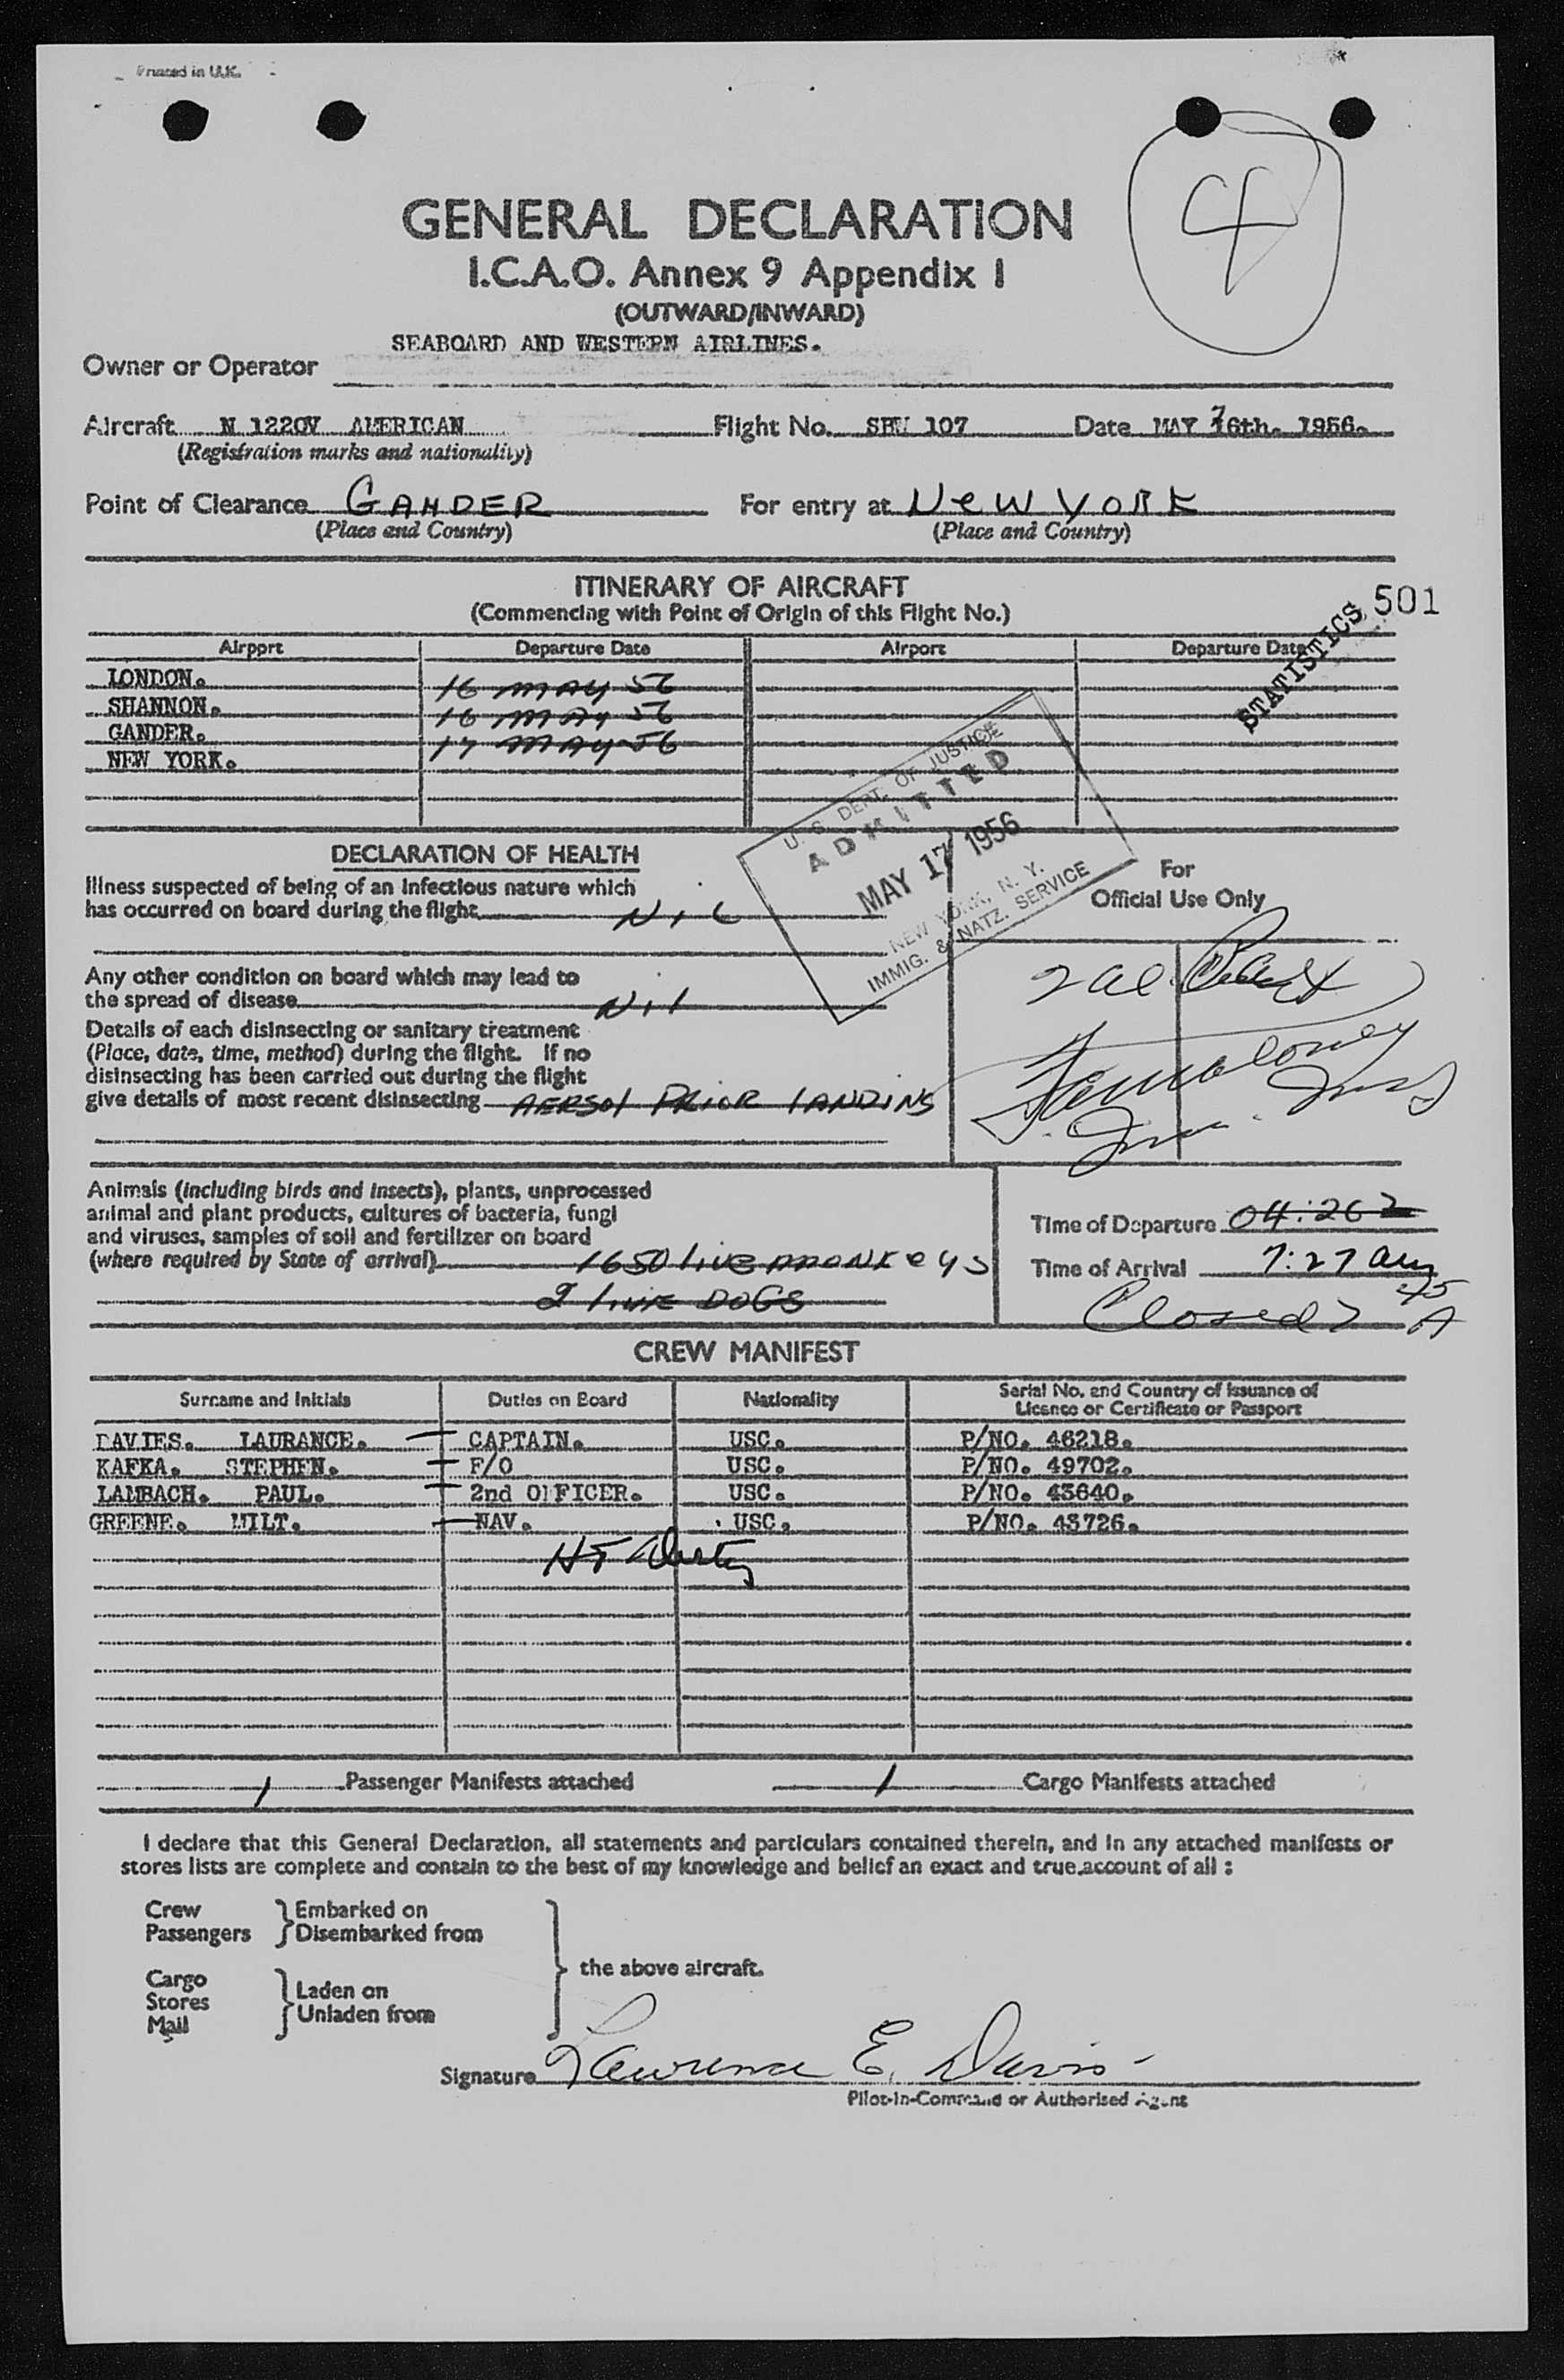 Printed in U.K.
4
GENERAL DECLARATION
I.C.A.O. Annex 9 Appendix 1
(OUTWARD/INWARD)
SEABOARD AND WESTERN AIRLINES.
Owner or Operator
Aircraft N 1220V AMERICAN Flight No. SBW 107 Date MAY 16th. 1956.
7
(Registration marks and nationality)
Point of Clearance GANDER For entry at NeW YORK
(Place and Country) (Place and Country)
ITINERARY OF AIRCRAFT
(Commencing with Point of Origin of this Flight No.)
STATISTICS 501
Airport Departure Date Airport Departure Date
LONDON. 16 MAY 56
SHANNON. 16 MAY 56
GANDER. 17 MAY 56
NEW YORK.
U. S. DEPT. OF JUSTICE
ADMITTED
MAY 17 1956
NEW YORK, N. Y.
IMMIG. & NATZ. SERVICE
DECLARATION OF HEALTH
Illness suspected of being of an infectious nature which
has occurred on board during the flight NIL
For
Official Use Only
Any other condition on board which may lead to
the spread of disease Nil
Details of each disinsecting or sanitary treatment
(Place, date, time, method) during the flight. If no
disinsecting has been carried out during the flight
give details of most recent disinsecting AERSOl PRIOR LANDING
Animals (including birds and insects), plants, unprocessed
animal and plant products, cultures of bacteria, fungi
and viruses, samples of soil and fertilizer on board
(where required by State of arrival) 1650 live MONKeys
2 live DOGS
Time of Departure 04:26Z
Time of Arrival 7:27 am
Closed 7 45 A
CREW MANIFEST
Surname and Initials Duties on Board Nationality Serial No. and Country of Issuance of
Licence or Certificate or Passport
DAVIES. LAURANCE. CAPTAIN. USC. P/NO. 46218.
KAFKA. STEPHEN. F/O USC. P/NO. 49702.
LAMBACH. PAUL. 2nd OFFICER. USC. P/NO. 43640.
GREENE. MILT. NAV. USC. P/NO. 43726.
1 Passenger Manifests attached 1 Cargo Manifests attached
I declare that this General Declaration, all statements and particulars contained therein, and in any attached manifests or
stores lists are complete and contain to the best of my knowledge and belief an exact and true account of all :
Crew Embarked on
Passengers Disembarked from
the above aircraft.
Cargo Laden on
Stores Unladen from
Mail
Signature Lawrence E. Davis
Pilot-in-Command or Authorised Agent